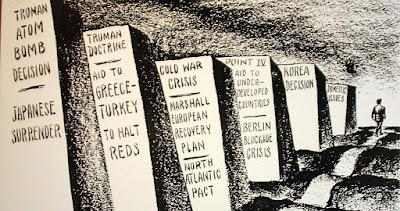 TRUMAN
ATOM
BOMB
DECISION
JAPANESE
SURRENDER
TRUMAN
DOCTRINE
AID TO
GREECE-
TURKEY
TO HALT
REDS
COLD WAR
CRISIS
MARSHALL
EUROPEAN
RECOVERY
PLAN
NORTH
ATLANTIC
PACT
POINT IV
AID TO
UNDER-
DEVELOPED
COUNTRIES
BERLIN
BLOCKADE
CRISIS
KOREA
DECISION
DOMESTIC
ISSUES